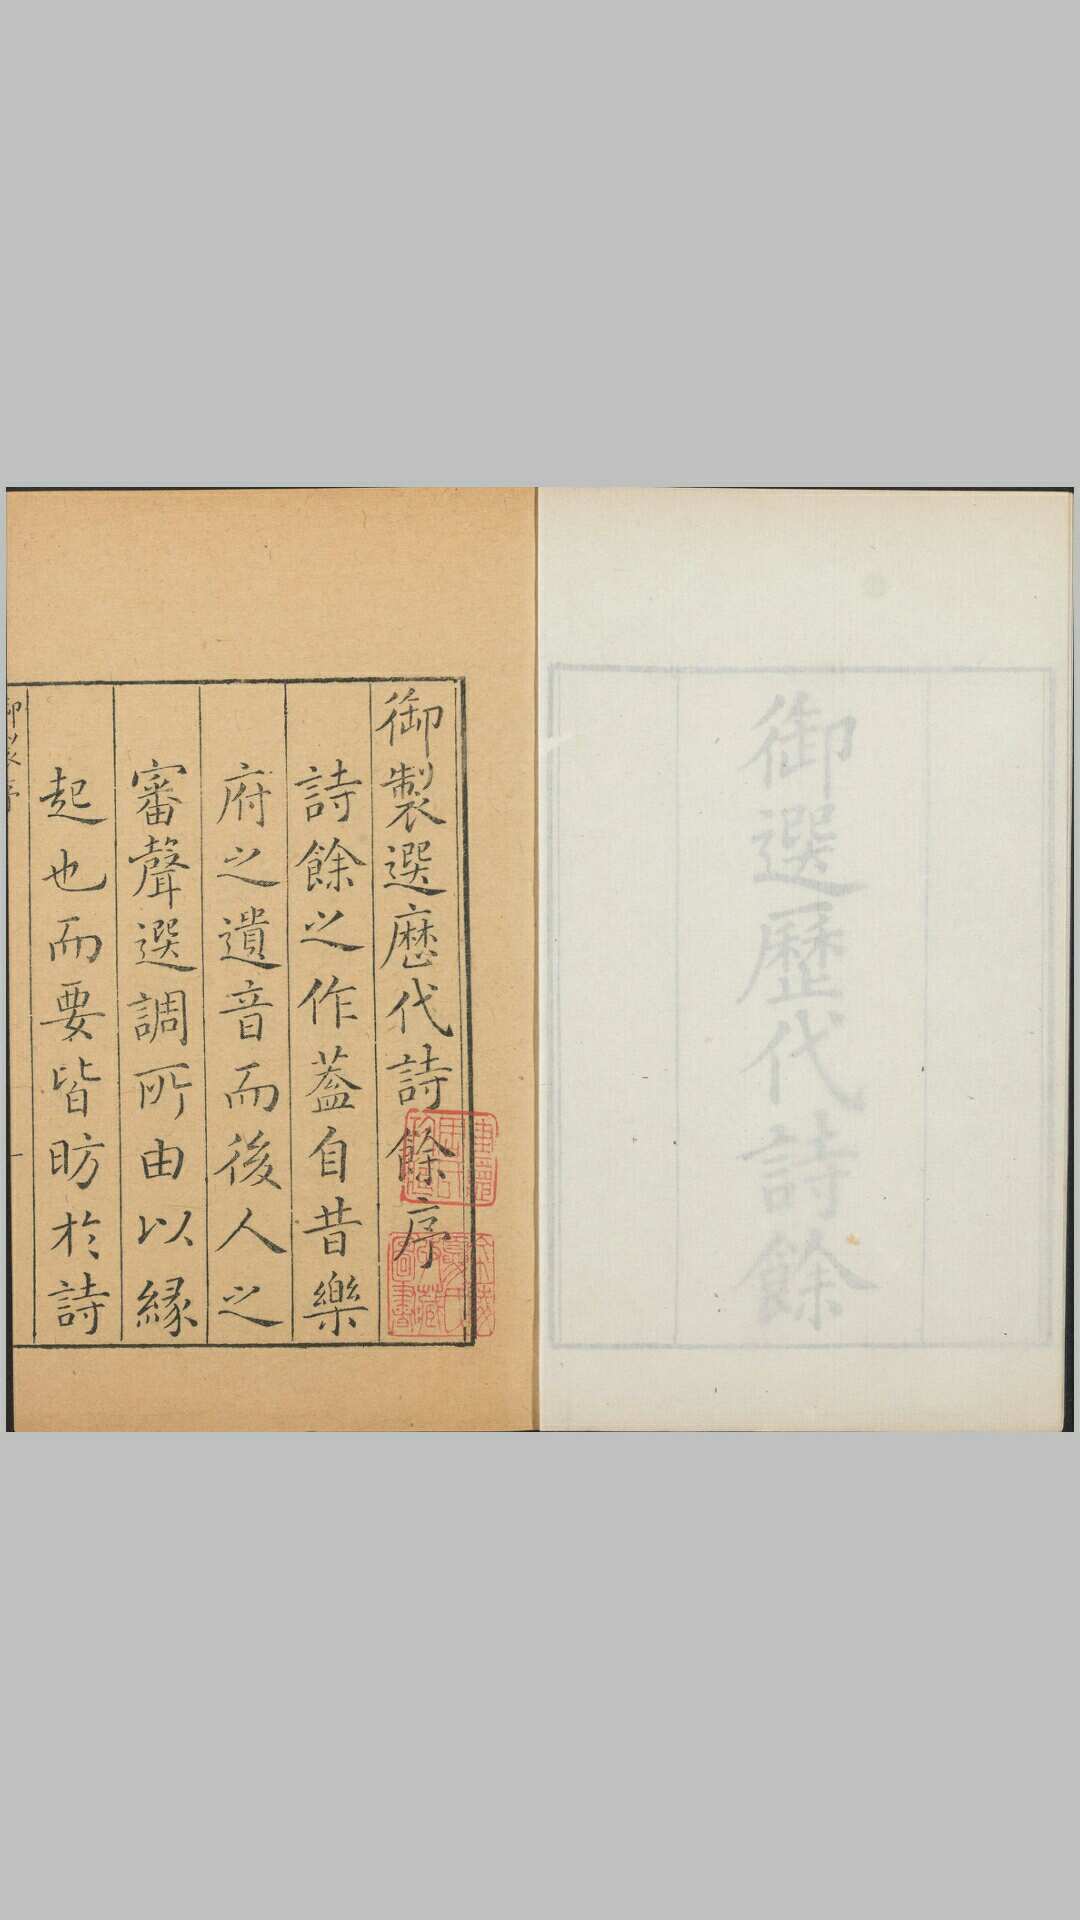 御選歷代詩餘
御製選歴代詩餘序
詩餘之作葢自昔樂
府之遺音而後人之
審聲選調所由以緣
起也而要皆昉於詩
御製序